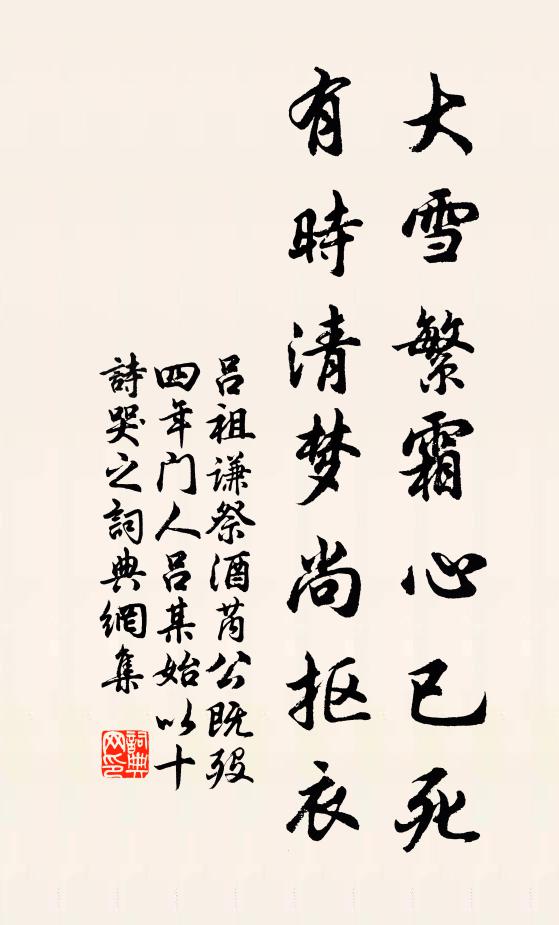 大雪繁霜心已死
有時清梦尚抠衣
吕祖谦祭酒芮公既殁
四年门人吕某始以十
詩哭之詞典網集
詞典
网印